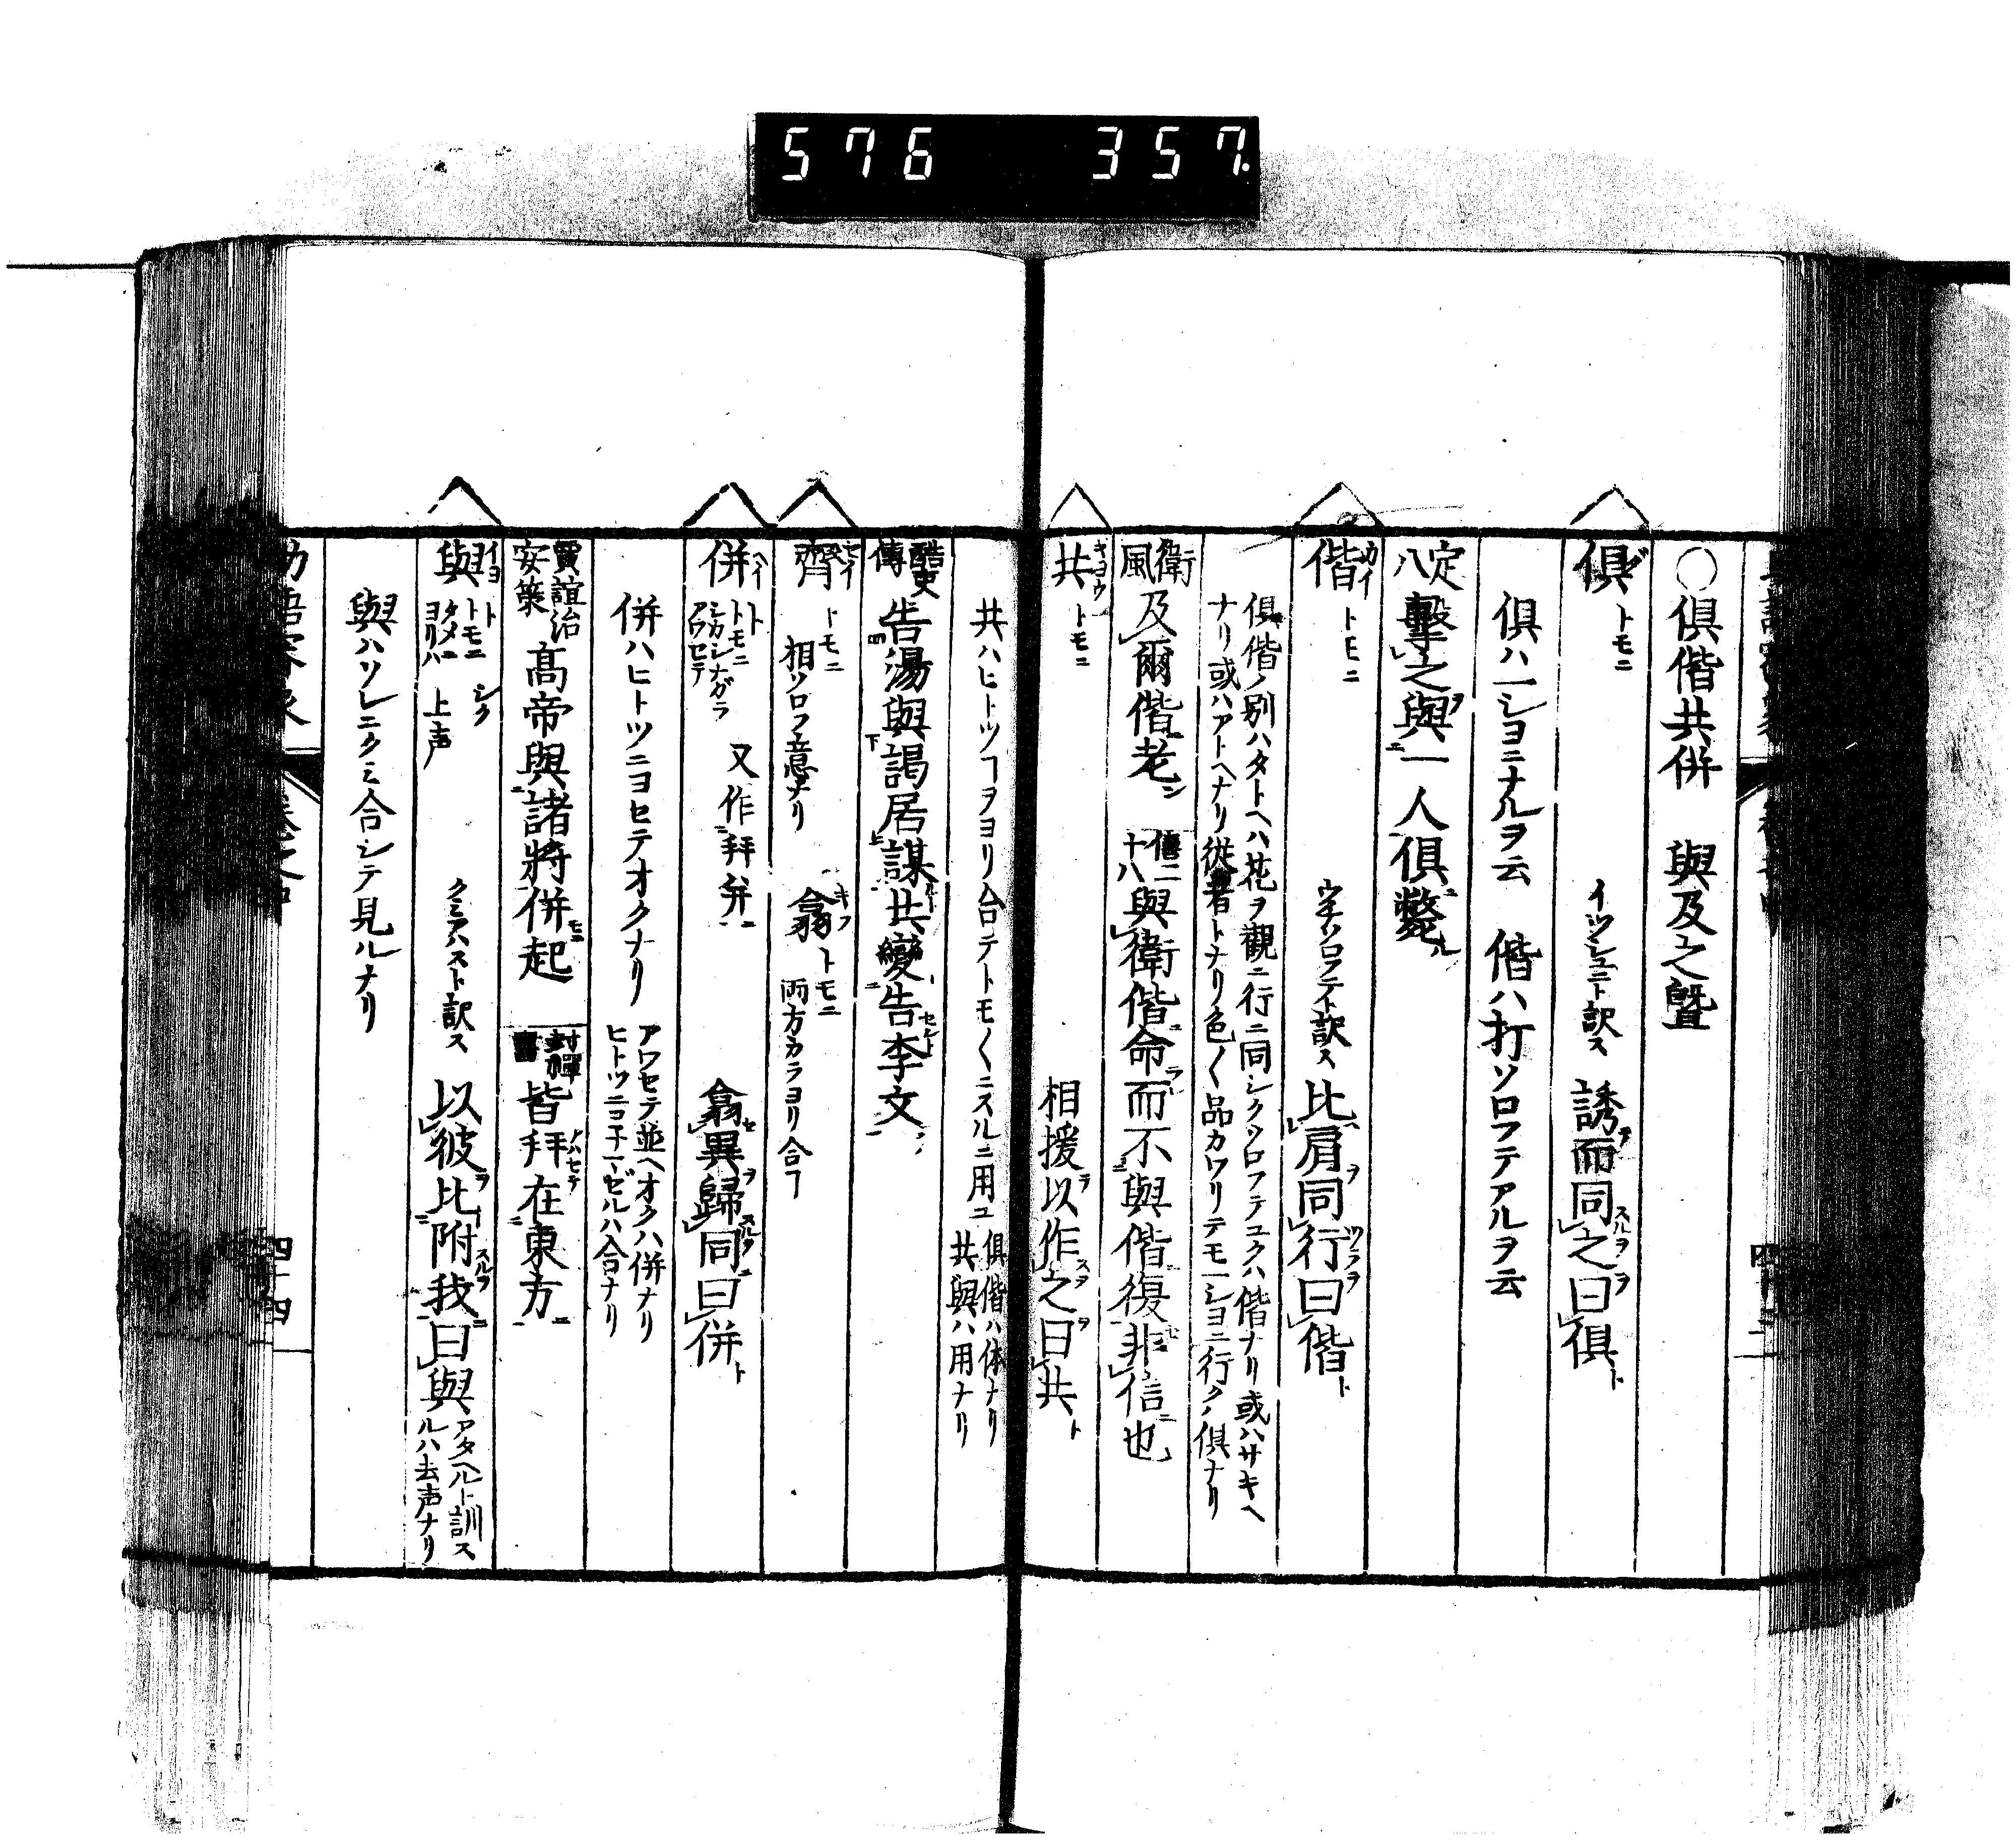 576 357
○俱偕共併 與及之曁
俱 トモニ イツシヨニト訳ス 誘而同之曰俱
俱ハ一シヨニナルヲ云 偕ハ打ソロフテアルヲ云
定八 擊之與一人俱斃
偕 カイ トモニ 訳ス 比肩同行曰偕
俱偕ノ別ハタトヘハ花ヲ觀ニ行ニ同シクソロフテユクハ偕ナリ或ハサキヘ
ナリ或ハアトヘナリ從者トナリ色〱品カワリテモ一シヨニ行クノ俱ナリ
衛風 及爾偕老 僖二十八 與衛偕命而不與偕復非信也
共 キヨウ トモニ 相援以作之曰共
共ハヒトツコヲヨリ合テトモ〱ニスルニ用ユ 俱偕ハ体ナリ共與ハ用ナリ
酷吏傳 告湯與謁居謀共變告李文
齊 セイ トモニ 相ソロフ意ナリ 翕 キフ トモニ 両方カラヨリ合フ
併 ヘイ トモニ シカシナガラ アワセテ 又作拜弁 翕異歸同曰併
併ハヒトツニヨセテオクナリ アワセテ並ヘオクハ併ナリ ヒトツニコチマゼルハ合ナリ
賈誼治安策 高帝與諸將併起 封禪書 皆拜在東方
與 ヨ トモニ シク タメニ ヨリハ 上声 クミアハスト訳ス 以彼比附我曰與 アタヘルト訓スルハ去声ナリ
與ハソレニクミ合シテ見ルナリ
四十四